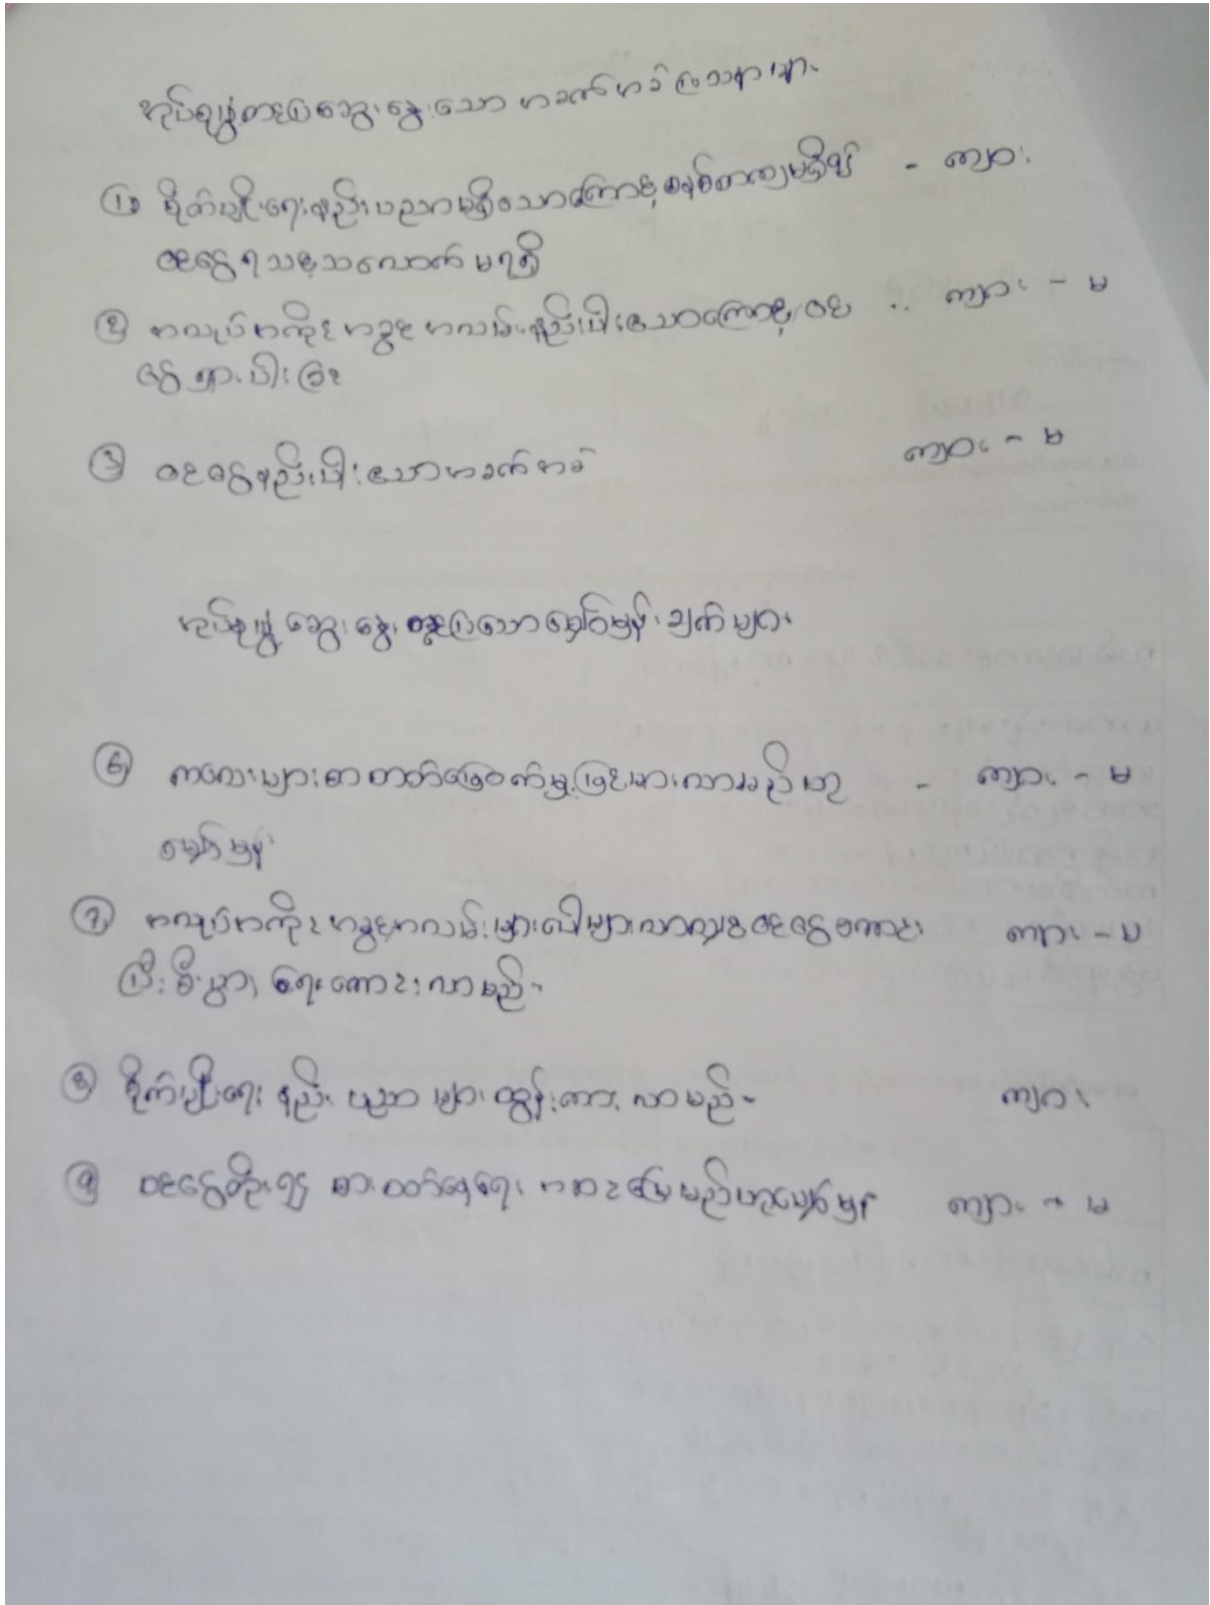 အုပ်စုဖွဲ့တင်ပြဆွေးနွေးသော အခက်အခဲပြဿနာများ
① စိုက်ပျိုးရေးနည်းပညာမရှိသောကြောင့် စနစ်တကျမရှိ၍ - ကျား
ဝင်ငွေရသင့်သလောက်မရရှိ
② အလုပ်အကိုင်အခွင့်အလမ်းနည်းပါးသောကြောင့် ဝင် - ကျား - မ
ငွေရှားပါးခြင်း
③ ဝင်ငွေနည်းပါးသောအခက်အခဲ ကျား - မ
အုပ်စုဖွဲ့ဆွေးနွေးတင်ပြသောမျှော်မှန်းချက်များ
⑥ ကလေးများစာတတ်မြောက်မှုမြင့်မားလာမည်ဟု - ကျား - မ
မျှော်မှန်း
⑦ အလုပ်အကိုင်အခွင့်အလမ်းများပေါများလာလျှင်ဝင်ငွေကောင်း ကျား - မ
ပြီးစီးပွားရေးကောင်းလာမည်။
⑧ စိုက်ပျိုးရေးနည်းပညာများထွန်းကားလာမည်။ ကျား
⑨ ဝင်ငွေတိုး၍ စားဝတ်နေရေးအဆင်ပြေမည်ဟုမျှော်မှန်း ကျား - မ